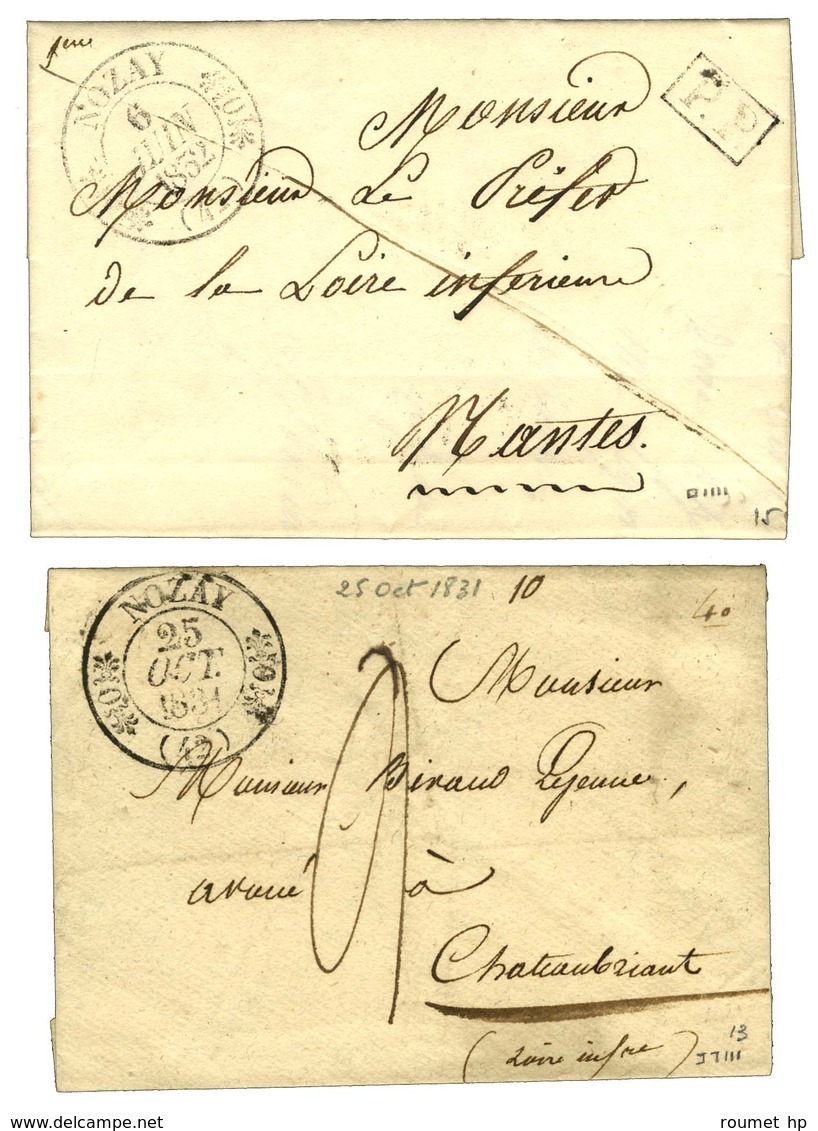 NOZAY
6
JUIN
1832
(42)
P.P
Monsieur
Monsieur Le Préfet
de la Loire inferieure
Nantes.
15
NOZAY
25
OCT.
1831
(42)
25 Oct 1831
10
40
Monsieur
Monsieur Biraud Lejeune,
avoué à
Chateaubriant
(Loire infre)
13
roumet hp